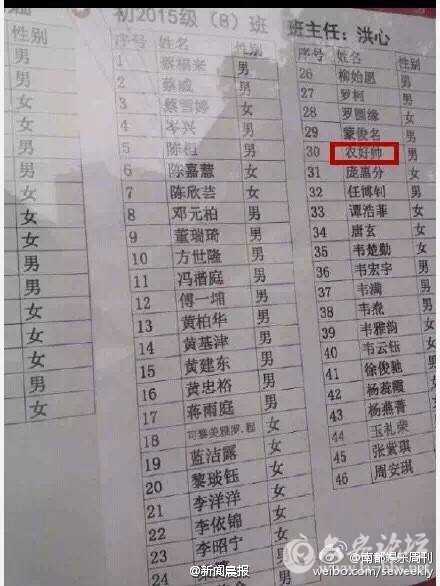 性别
男
男
女
女
男
男
女
女
男
男
女
女
女
男
女
初2015级（8）班 班主任：洪心
序号 姓名 性别
1 蔡福来 男
2 蔡威 男
3 蔡雪婷 女
4 岑兴 男
5 陈桓 男
6 陈嘉慧 女
7 陈欣芸 女
8 邓元柏 男
9 董瑞琦 男
10 方世隆 男
11 冯楷庭 男
12 傅一珊 女
13 黄柏华 男
14 黄基津 男
15 黄建东 男
16 黄忠裕 男
17 蒋雨庭
18
19 蓝洁露 女
20 黎琰钰 女
21 李洋洋 女
22 李依锦 女
23 李昭宁
24
序号 姓名
26 柳始愿 男
27 罗柯 男
28 罗圆缘 女
29 蒙俊名 男
30 农好帅 男
31 庞惠分 女
32 任博钊 男
33 谭浩菲 女
34 唐玄 女
35 韦楚勤 男
36 韦宏宇 男
37 韦满 男
38 韦焘 男
39 韦雅韵 女
40 韦云钰 女
41 徐俊驰 男
42 杨蕊霞 女
43 杨燕菁 女
44 玉礼荣
45 张棠琪
46 周安琪
@新闻晨报
@南都娱乐周刊
weibo.com/seweekly